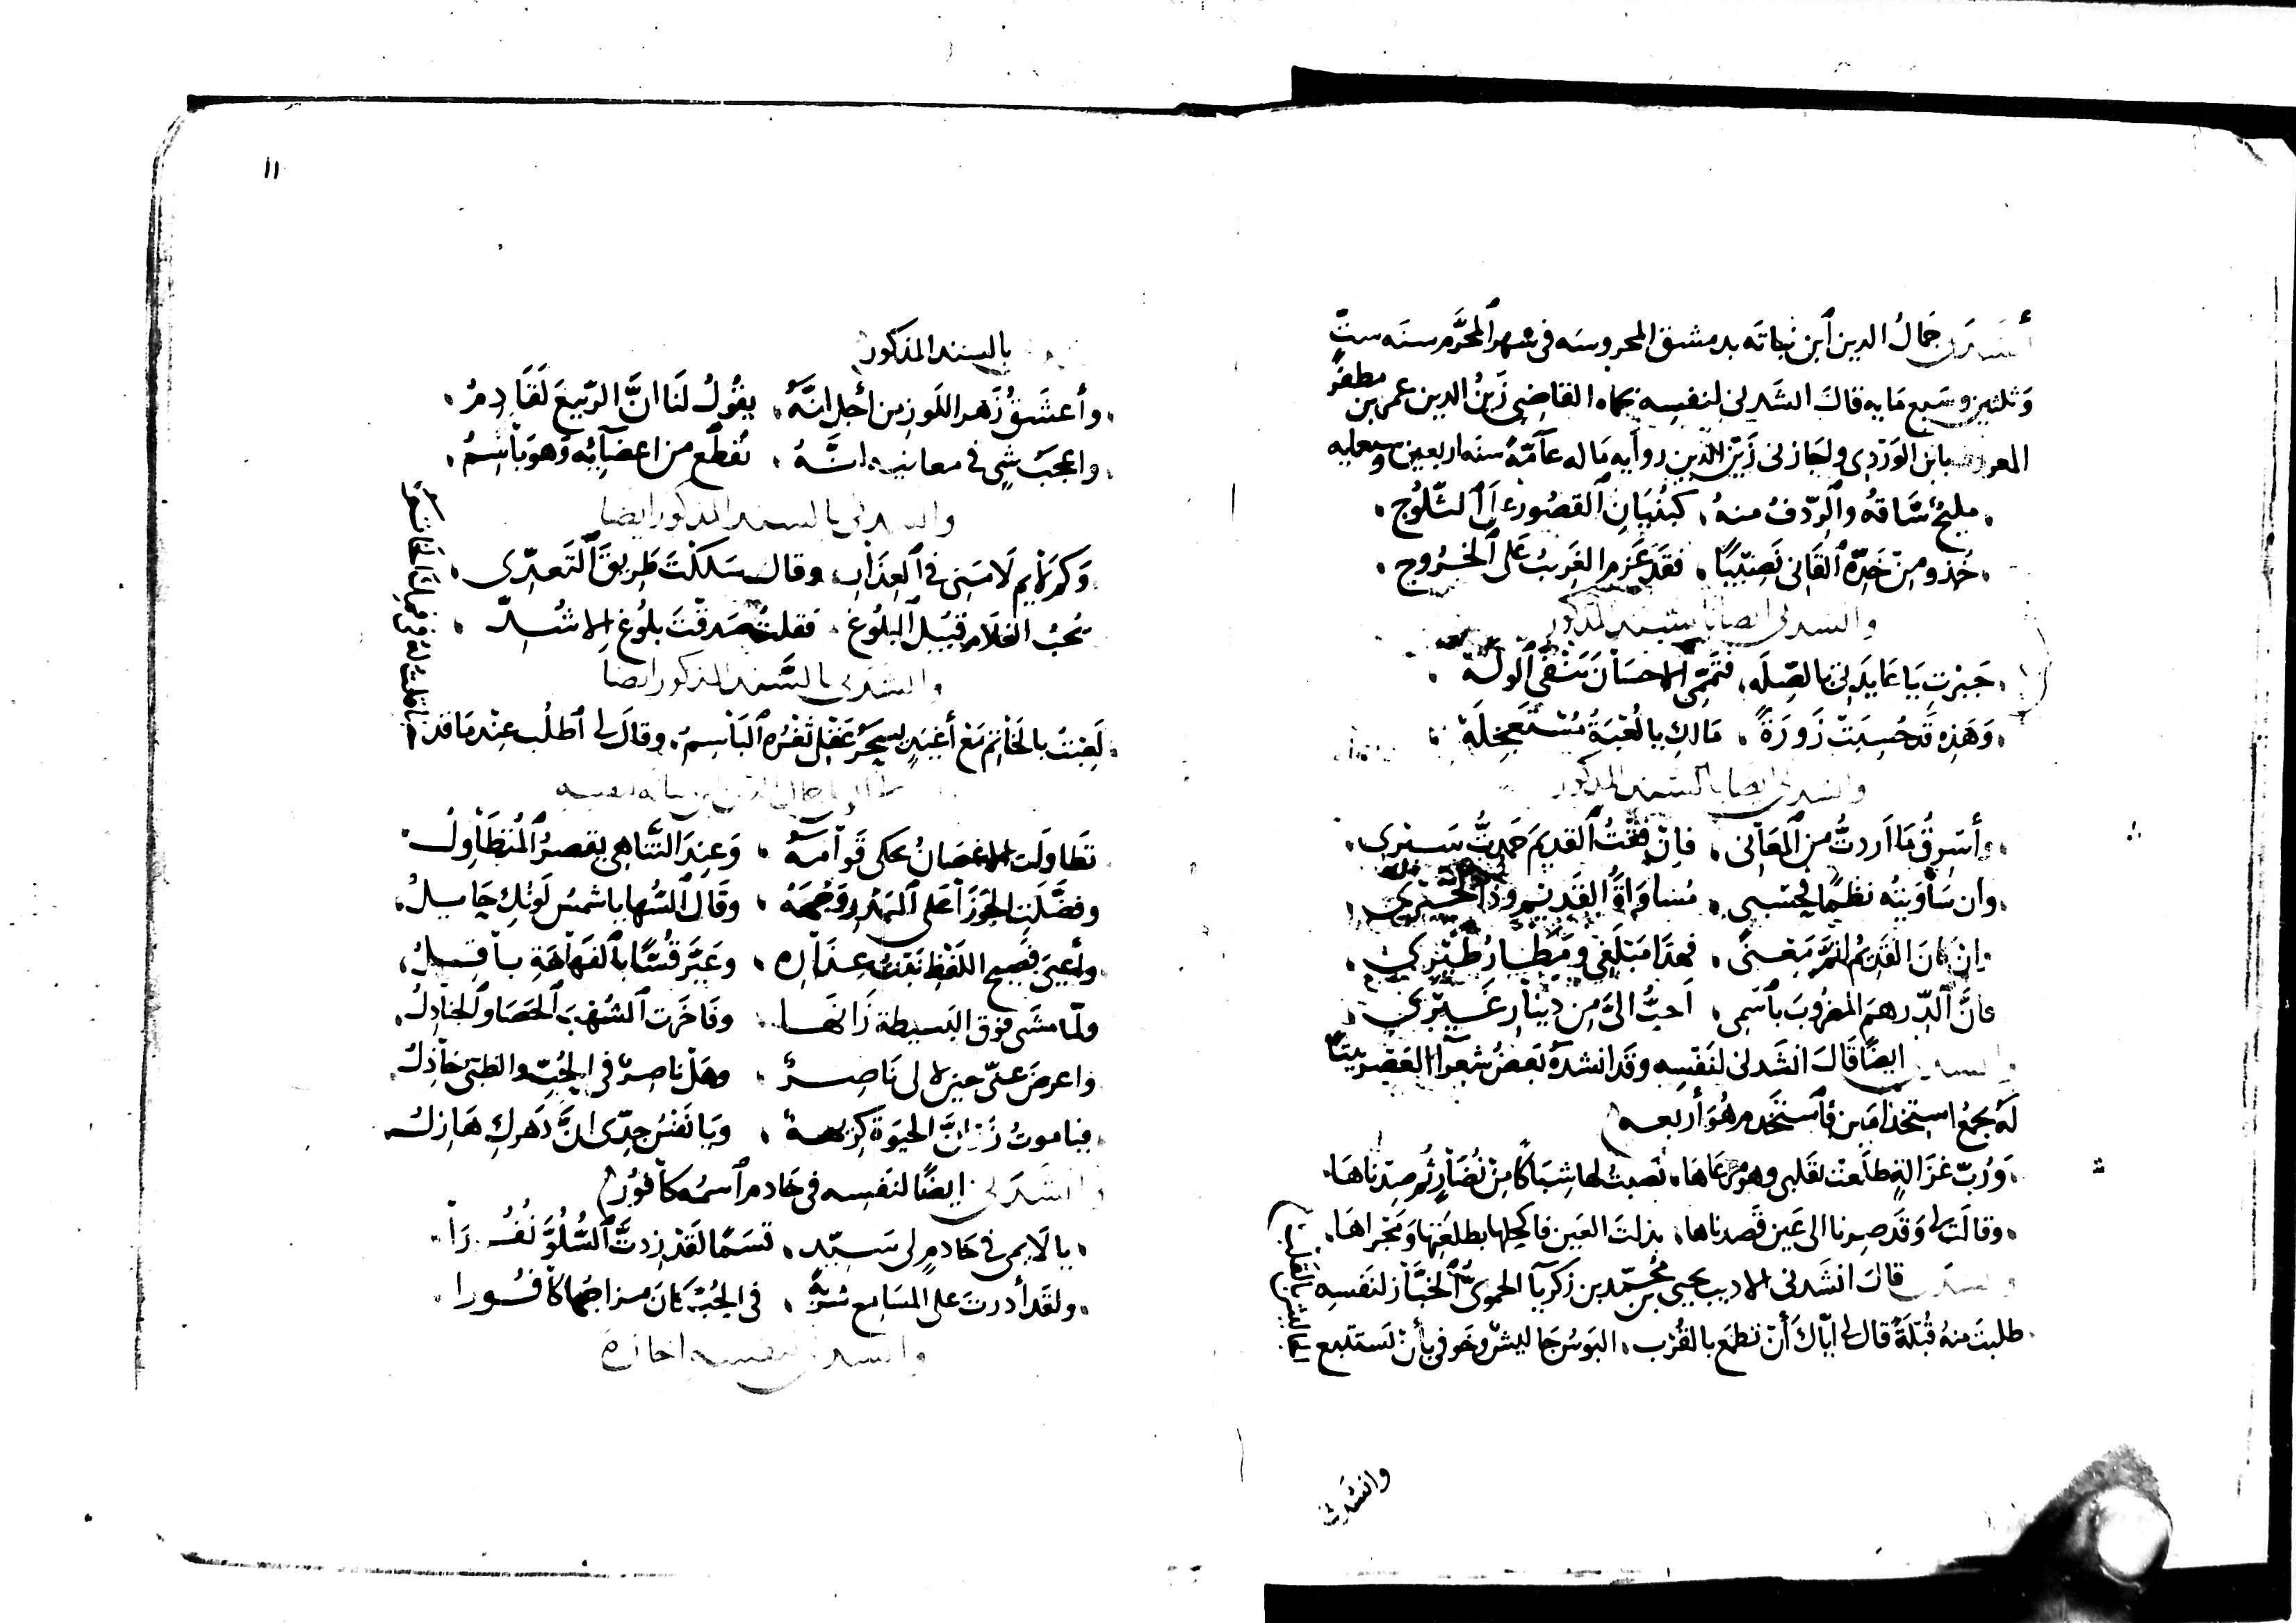 أنشدني جمالُ الدين ابن نباته بدمشق المحروسه في شهر المحرَّم سنه ستّ
وَثلثين وسَبع مَايه قاك انشدني لنفسِه بحماه القاضِي زَينُ الدين عمر بن مظفر
المعروف بابن الوَرْدِي واجَازني زَيْنُ الدين روايه مَا له عَامَّةً سنه اربعين وسبعمايه
مليحُ سَاقهُ والرّدفُ منهُ كبُنيَانِ القصُورِ عَلَى الثّلُوجِ
خذو مِنْ خَدّهِ القَاني نَصِيبًا فقَد عَزَم الغَريبُ عَلى الخرُوج
وانشدني ايضا بالسَّند المذكور
جَبَرْتِ يَا عَايدَتي بالصِّلَه فتَمّمي الاحسَانَ تَنْفي الوَلَهْ
وَهَذِه قَد حُسِبَتْ زَورَةً مَالكِ يالُعْبَةُ مُسْتَعجِلَهْ
وانشدني ايضا بالسَّند المذكور
وأسْرِقُ مَا اَردتُّ من المعَاني فإنْ فقْتُ القديمَ حَمدتُّ سَيْرِي
وان سَاوَيتُه نظمًا فحَسْبي مُسَاوَاةُ القَديْمِ وذا لخَيْرِي
وَانْ كانَ القَديْمُ اتمَّ مَعنىً فهذَا مَبْلَغِي ومَطَارُ طَيْرِي
فانَّ الدِّرهمَ المضروبَ باسْمِي اَحبُّ الىَّ مِن دينَارِ غَيْرِي
وانشدني ايضًا قَالَ انشَدني لنَفسِه وقَد انشدهُ بَعضُ شعَراء العَصْر بيتًا
لَهُ يجمعُ استخدامَين فاستَخْدم هُوَ أربعه
وَرُبَّ غزَالةٍ طلَعتْ بقَلبي وهو مَرْعَاهَا نصَبتُ لهَا شِبَاكًا مِنْ نُضَارٍ ثُم صِدْناهَا
وقالَتْ لي وَقَد صِرنا الى عَين قَصدناها بذلتَ العَينَ فاكحلها بطلعَتِها وَمَجراهَا
وانشدني قاك انشَدني الاديب يحيى بن مُحمّد بن زكريا الحمويُّ الخبَّاز لنَفسِه
طلبتُ منهُ قُبلَةً قال لي ايّاكَ أنْ تطمَع بالقُرب البَوسُ جَاليشٌ وخَوفي بأنْ تستَتْبع الجاليش بالقلب
وانشدني
١١
بالسند المذكور
وأعشَقُ زَهر اللَوزِ من أجلِ انَّهُ يقُولُ لَنَا انَّ الرّبيعَ لَقَادِمُ
واعجَبُ شَيٍ في معانيه انَّهُ تَقطَّع من اعضَايِه وَهوَ بَاسِمُ
وانشدني بالسند المذكور ايضا
وَكَم لَايمٍ لَامَنِي في العِذَارِ وقال سَلكْتَ طَريقَ التَعدّي
تحُبُ الغلَام قبَيْل البلُوغِ فقلتُ صَدقتَ بلُوغ الاشُدّ
وانشدني بالسَّند المذكور ايضا
لَعِبتُ بالخَاتم مَع أغيَدٍ يسحَرُ عَقلي ثَغْرُه البَاسِمُ وقالَ لي اطلُب عِنْد مَا قد
تطاولَت الاغصَانُ تحكي قَوامَهُ وَعِندَ التَّنَاهي يقصرُ المُتطَاوِلُ
وفضّلَتِ الجَوزَاء عَلى البَدرِ وَجهَهُ وقَال السُّها يا شَمسُ لَونُكِ حَايلُ
وأعيَى فصيح اللفظِ نَبْتُ عِذَارِه وَعَيّرَ قُسًّا بالفَهَاهَةِ بَاقِلُ
ولمّا مشَى فوق البَسِيطة زَانَهَا وفَاخَرت الشُهْبَ الحصَا والجنَادِلُ
واعرضَ عنّي حينَ لا لي نَاصِرٌ وهَلْ ناصِرٌ في الحُبِّ والظبيُ خَاذِلُ
فيا موتُ زُر انَّ الحيوَة كريهَة وَيا نَفْسُ جِدّي انَّ دَهركِ هَازِلُ
وانشَدني ايضًا لنفسِه في خَادم اسمُه كافُور
يا لَايمي في خَادمٍ لي سَيِّدٍ قسَمًا لقَدْ زدتَّ السُّلُوَّ نُفُورَا
ولقَد أدرتَ على المسَامِع شربَةً في الحُبِّ كانَ مزاجُهَا كافُورا
وانشدني لنفسه اجازة